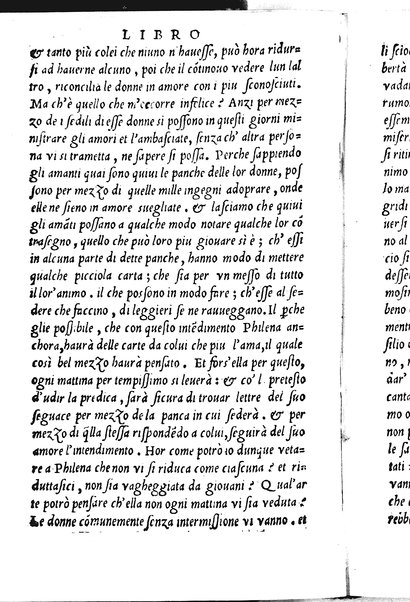 LIBRO
& tanto più colei che niuno n'hauesse, può hora ridur-
si ad hauerne alcuno, poi che il cōtinouo vedere l'un l'al
tro, riconcilia le donne in amore con i piu sconosciuti.
Ma ch'è quello che m'occorre infelice? Anzi per mez-
zo de i sedili di esse donne si possono in questi giorni mi-
nistrare gli amori et l'ambasciate, senza ch'altra perso-
na vi si trametta, ne sapere si possa. Perche sappiendo
gli amanti quai sono quiui le panche delle lor donne, pos
sono per mezzo di quelle mille ingegni adoprare, onde
elle ne sieno in amore suegliate. & lasciamo che quiui
gli amāti possano a qualche modo notare qualche lor cō
trasegno, quello che può loro piu giouare si è; ch'essi
in alcuna parte di dette panche, hanno modo di mettere
qualche picciola carta; che sia per vn messo di tutto
il lor'animo. il che possono in modo fare; ch'esse al se-
dere che faccino, di leggieri se ne rauueggano. Il ꝑche
glie possibile, che con questo intēdimento Philena an-
chora, haurà delle carte da colui che piu l'ama, il quale
così bel mezzo haurà pensato. Et fors'ella per questo,
ogni mattina per tempissimo si leuerà: & co'l pretesto
d'udir la predica, sarà sicura di trouar lettre del suo
seguace per mezzo de la panca in cui sederà. & per
mezzo di q̄lla stessa rispondēdo a colui, seguirà del suo
amore l'intendimento. Hor come potrò io dunque veta-
re a Philena che non vi si riduca come ciascuna? et ri-
duttasici, non sia vagheggiata da giouani? Qual'ar
te potrò pensare ch'ella non ogni mattina vi sia veduta?
Le donne cōmunemente senza intermissione vi vanno. et